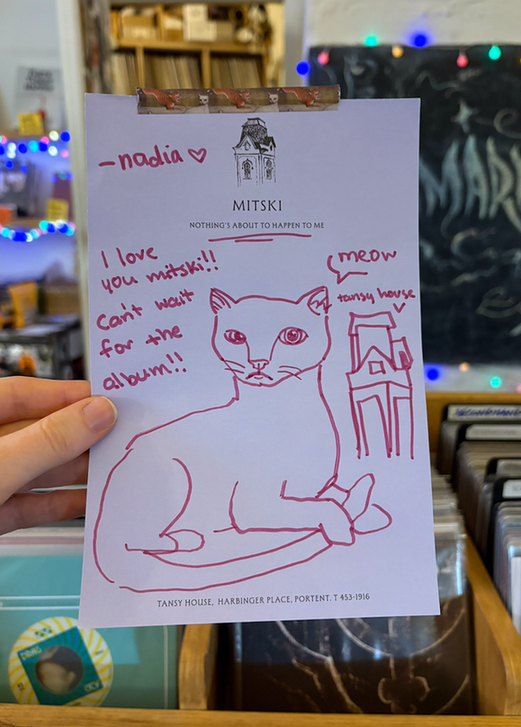 - nadia ♡
MITSKI
NOTHING'S ABOUT TO HAPPEN TO ME
I love
you mitski!!
can't wait
for the
album!!
meow
tansy house
TANSY HOUSE, HARBINGER PLACE, PORTENT. T 453-1916